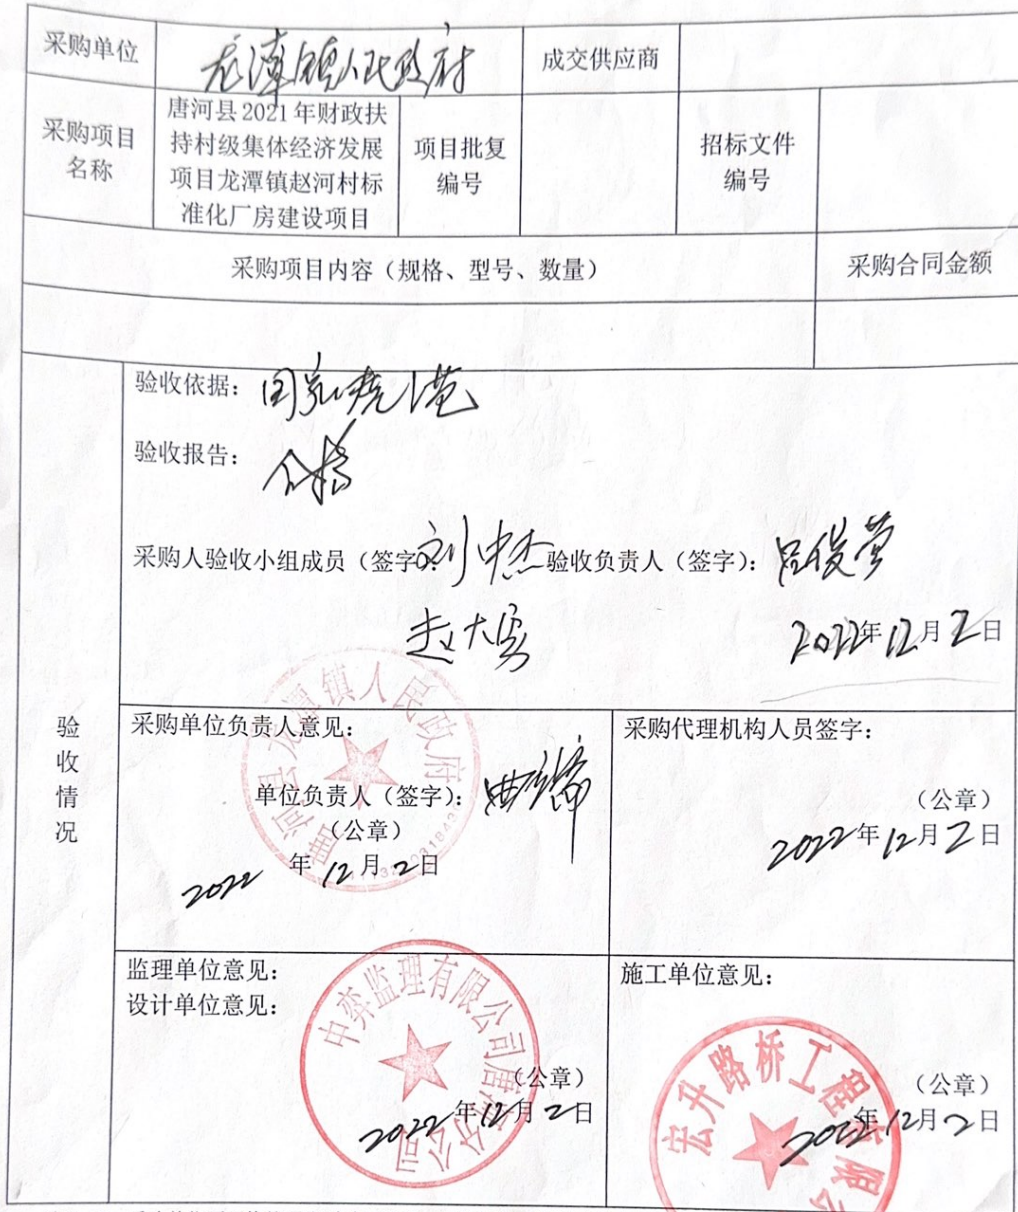 采购单位 龙潭镇人民政府 成交供应商
采购项目名称 唐河县2021年财政扶
持村级集体经济发展
项目龙潭镇赵河村标
准化厂房建设项目
项目批复
编号
招标文件
编号
采购项目内容（规格、型号、数量） 采购合同金额
验收情况
验收依据：国家规范
验收报告：合格
采购人验收小组成员（签字 刘中杰 验收负责人（签字）：吕俊莹
赵大
2022年12月2日
采购单位负责人意见：
单位负责人（签字）：
（公章）
2022年12月2日
唐河县龙潭镇人民政府
采购代理机构人员签字：
（公章）
2022年12月2日
监理单位意见：
设计单位意见：
（公章）
2022年12月2日
中弈监理有限公司唐河分公司
施工单位意见：
（公章）
2022年12月2日
宏升路桥工程有限公